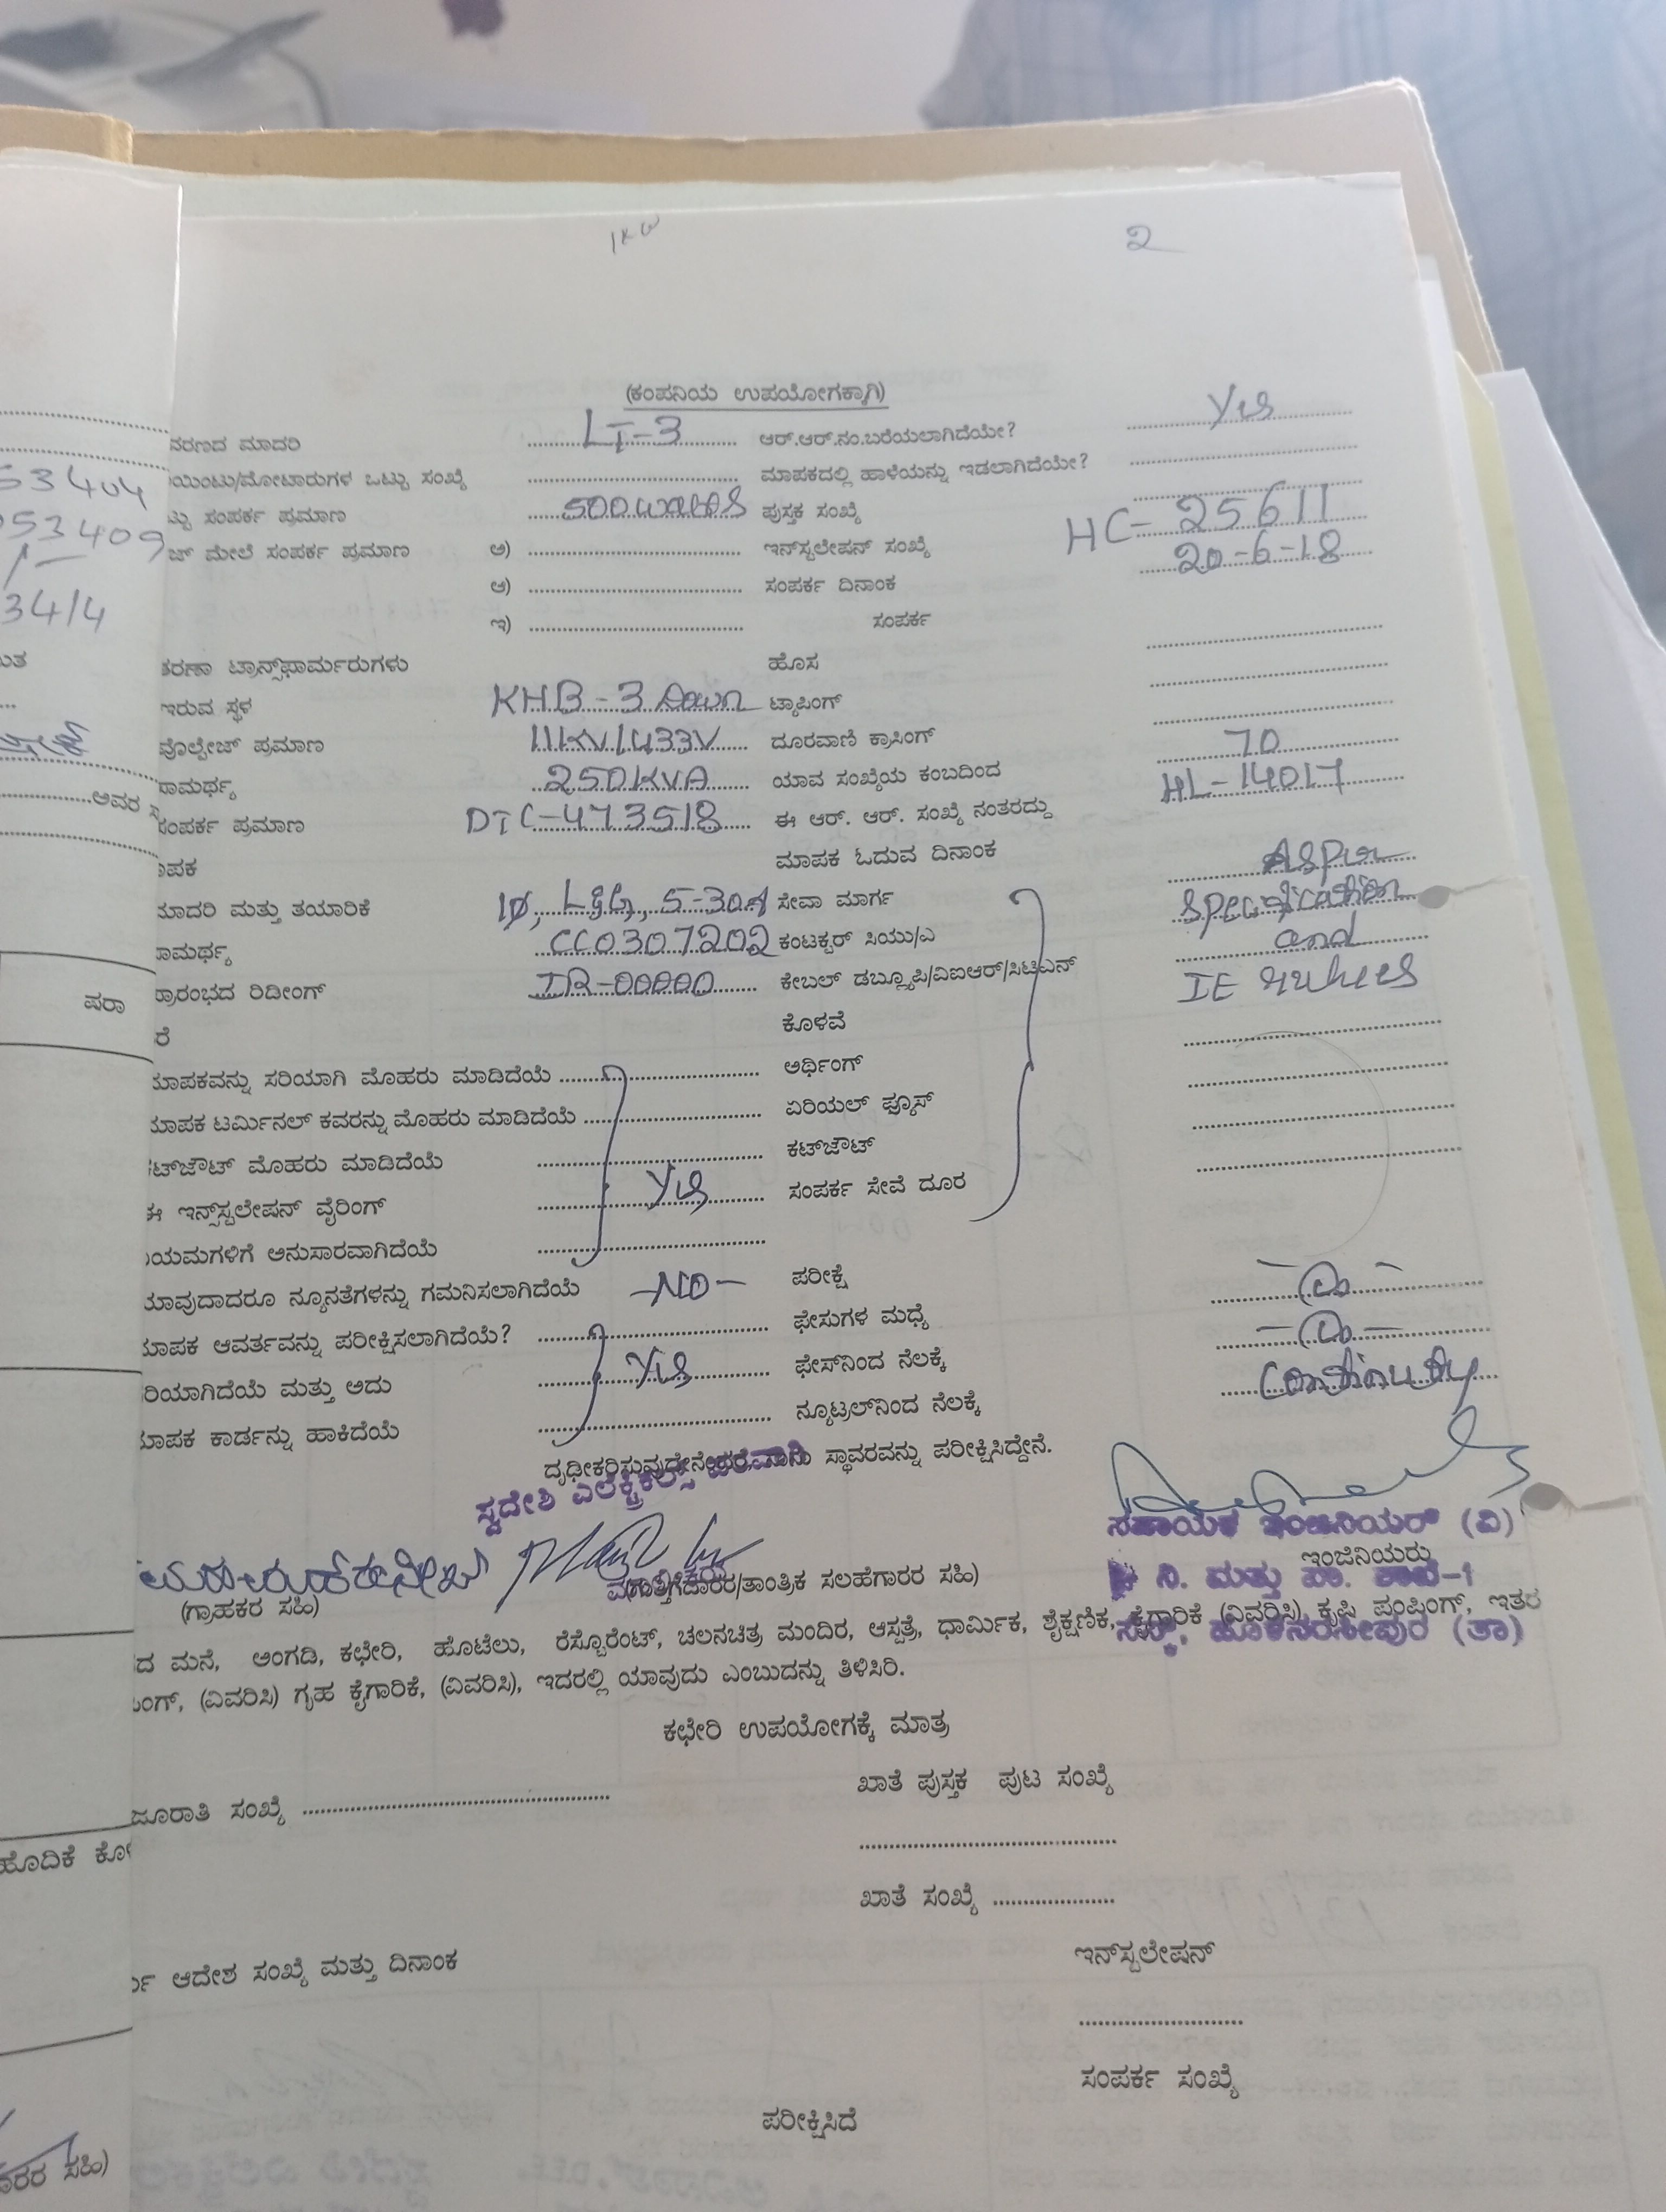 1KW
೨
(ಕಂಪನಿಯ ಉಪಯೋಗಕ್ಕಾಗಿ)
ವರಣದ ಮಾದರಿ LT-3 ಆರ್.ಆರ್.ನಂ.ಬರೆಯಲಾಗಿದೆಯೇ? Yes
ಯಿಂಟು/ಮೋಟಾರುಗಳ ಒಟ್ಟು ಸಂಖ್ಯೆ ಮಾಪಕದಲ್ಲಿ ಹಾಳೆಯನ್ನು ಇಡಲಾಗಿದೆಯೇ?
53404
ಟ್ಟು ಸಂಪರ್ಕ ಪ್ರಮಾಣ 500 watts ಪುಸ್ತಕ ಸಂಖ್ಯೆ
53409
ಜ್ ಮೇಲೆ ಸಂಪರ್ಕ ಪ್ರಮಾಣ ಅ) ಇನ್‌ಸ್ಟಲೇಷನ್ ಸಂಖ್ಯೆ HC-25611
ಆ) ಸಂಪರ್ಕ ದಿನಾಂಕ 20-6-18
34/4
ಇ) ಸಂಪರ್ಕ
ತರಣಾ ಟ್ರಾನ್ಸ್‌ಫಾರ್ಮರುಗಳು ಹೊಸ
ಇರುವ ಸ್ಥಳ KHB-3 Down ಟ್ಯಾಪಿಂಗ್
ವೊಲ್ಟೇಜ್ ಪ್ರಮಾಣ 11KV/433V ದೂರವಾಣಿ ಕ್ರಾಸಿಂಗ್
ಸಾಮರ್ಥ್ಯ 250KVA ಯಾವ ಸಂಖ್ಯೆಯ ಕಂಬದಿಂದ 70
ಅವರ
ಸಂಪರ್ಕ ಪ್ರಮಾಣ DTC-473518 ಈ ಆರ್. ಆರ್. ಸಂಖ್ಯೆ ನಂತರದ್ದು HL-14017
ಾಪಕ ಮಾಪಕ ಓದುವ ದಿನಾಂಕ
ಮಾದರಿ ಮತ್ತು ತಯಾರಿಕೆ 1Ø, L&G, 5-30A ಸೇವಾ ಮಾರ್ಗ As per
ಸಾಮರ್ಥ್ಯ CC0307202 ಕಂಟಕ್ಟರ್ ಸಿಯು/ಎ Specification
ಷರಾ
ರಾರಂಭದ ರಿಡೀಂಗ್ IR-00000 ಕೇಬಲ್ ಡಬ್ಲ್ಯೂಪಿ/ವಿಐಆರ್/ಸಿಟಿಎನ್ and
ರೆ ಕೊಳವೆ IE
ಮಾಪಕವನ್ನು ಸರಿಯಾಗಿ ಮೊಹರು ಮಾಡಿದೆಯೆ ಅರ್ಥಿಂಗ್
ಮಾಪಕ ಟರ್ಮಿನಲ್ ಕವರನ್ನು ಮೊಹರು ಮಾಡಿದೆಯೆ ಏರಿಯಲ್ ಫ್ಯೂಸ್
ಟ್‌ಔಟ್ ಮೊಹರು ಮಾಡಿದೆಯೆ ಕಟ್‌ಔಟ್
ಈ ಇನ್ಸ್‌ಸ್ಟಲೇಷನ್ ವೈರಿಂಗ್ Yes ಸಂಪರ್ಕ ಸೇವೆ ದೂರ
ಯಮಗಳಿಗೆ ಅನುಸಾರವಾಗಿದೆಯೆ
ಯಾವುದಾದರೂ ನ್ಯೂನತೆಗಳನ್ನು ಗಮನಿಸಲಾಗಿದೆಯೆ -NO- ಪರೀಕ್ಷೆ
ಮಾಪಕ ಆವರ್ತವನ್ನು ಪರೀಕ್ಷಿಸಲಾಗಿದೆಯೆ? ಫೇಸುಗಳ ಮಧ್ಯೆ
ರಿಯಾಗಿದೆಯೆ ಮತ್ತು ಅದು Yes ಫೇಸ್‌ನಿಂದ ನೆಲಕ್ಕೆ
ಮಾಪಕ ಕಾರ್ಡನ್ನು ಹಾಕಿದೆಯೆ ನ್ಯೂಟ್ರಲ್‌ನಿಂದ ನೆಲಕ್ಕೆ Continuity
ದೃಢೀಕರಿಸುವುದೇನೇಂದರೆ ನಾನು ಸ್ಥಾವರವನ್ನು ಪರೀಕ್ಷಿಸಿದ್ದೇನೆ.
ಸ್ವದೇಶಿ ಎಲೆಕ್ಟ್ರಿಕಲ್ಸ್
ಸಹಾಯಕ ಇಂಜಿನಿಯರ್ (ವಿ)
ಇಂಜಿನಿಯರು
ನಿ. ಮತ್ತು ಪಾ. ಶಾಖೆ-1
(ಗ್ರಾಹಕರ ಸಹಿ) /ತಾಂತ್ರಿಕ ಸಲಹೆಗಾರರ ಸಹಿ)
ಹೊಳೆನರಸೀಪುರ (ತಾ)
ದ ಮನೆ, ಅಂಗಡಿ, ಕಛೇರಿ, ಹೊಟೆಲು, ರೆಸ್ಟೊರೆಂಟ್, ಚಲನಚಿತ್ರ ಮಂದಿರ, ಆಸ್ಪತ್ರೆ, ಧಾರ್ಮಿಕ, ಶೈಕ್ಷಣಿಕ, ಕೈಗಾರಿಕೆ (ವಿವರಿಸಿ), ಕೃಷಿ ಪಂಪಿಂಗ್, ಇತರ
ಂಗ್, (ವಿವರಿಸಿ) ಗೃಹ ಕೈಗಾರಿಕೆ, (ವಿವರಿಸಿ), ಇದರಲ್ಲಿ ಯಾವುದು ಎಂಬುದನ್ನು ತಿಳಿಸಿರಿ.
ಕಛೇರಿ ಉಪಯೋಗಕ್ಕೆ ಮಾತ್ರ
ಖಾತೆ ಪುಸ್ತಕ ಪುಟ ಸಂಖ್ಯೆ
ಜೂರಾತಿ ಸಂಖ್ಯೆ
ಹೊದಿಕೆ
ಖಾತೆ ಸಂಖ್ಯೆ
ಇನ್‌ಸ್ಟಲೇಷನ್
ಆದೇಶ ಸಂಖ್ಯೆ ಮತ್ತು ದಿನಾಂಕ
ಸಂಪರ್ಕ ಸಂಖ್ಯೆ
ಪರೀಕ್ಷಿಸಿದೆ
ಸಹಿ)